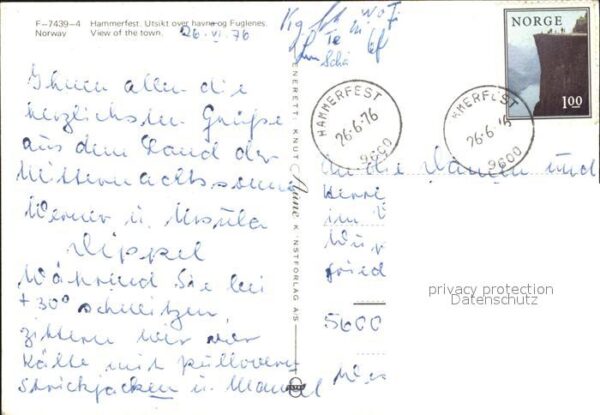 F-7439-4 Hammerfest. Utsikt over havna og Fuglenes.
Norway View of the town.
26.VI.76
Ihnen allen die
herzlichsten Grüße
aus dem Land der
Mitternachtssonne
Werner u. Ursula
Dippel
Während Sie bei
+ 30° schwitzen,
zittern wir vor
Kälte mit Pullovern
Strickjacken u. Mantel
ENERETT KNUT Aune KUNSTFORLAG A/S
HAMMERFEST
26-6-76
9600
HAMMERFEST
26-6-76
9600
NORGE
1.00
An die Damen und
Herre
im
Wup
fried
5600
privacy protection
Datenschutz